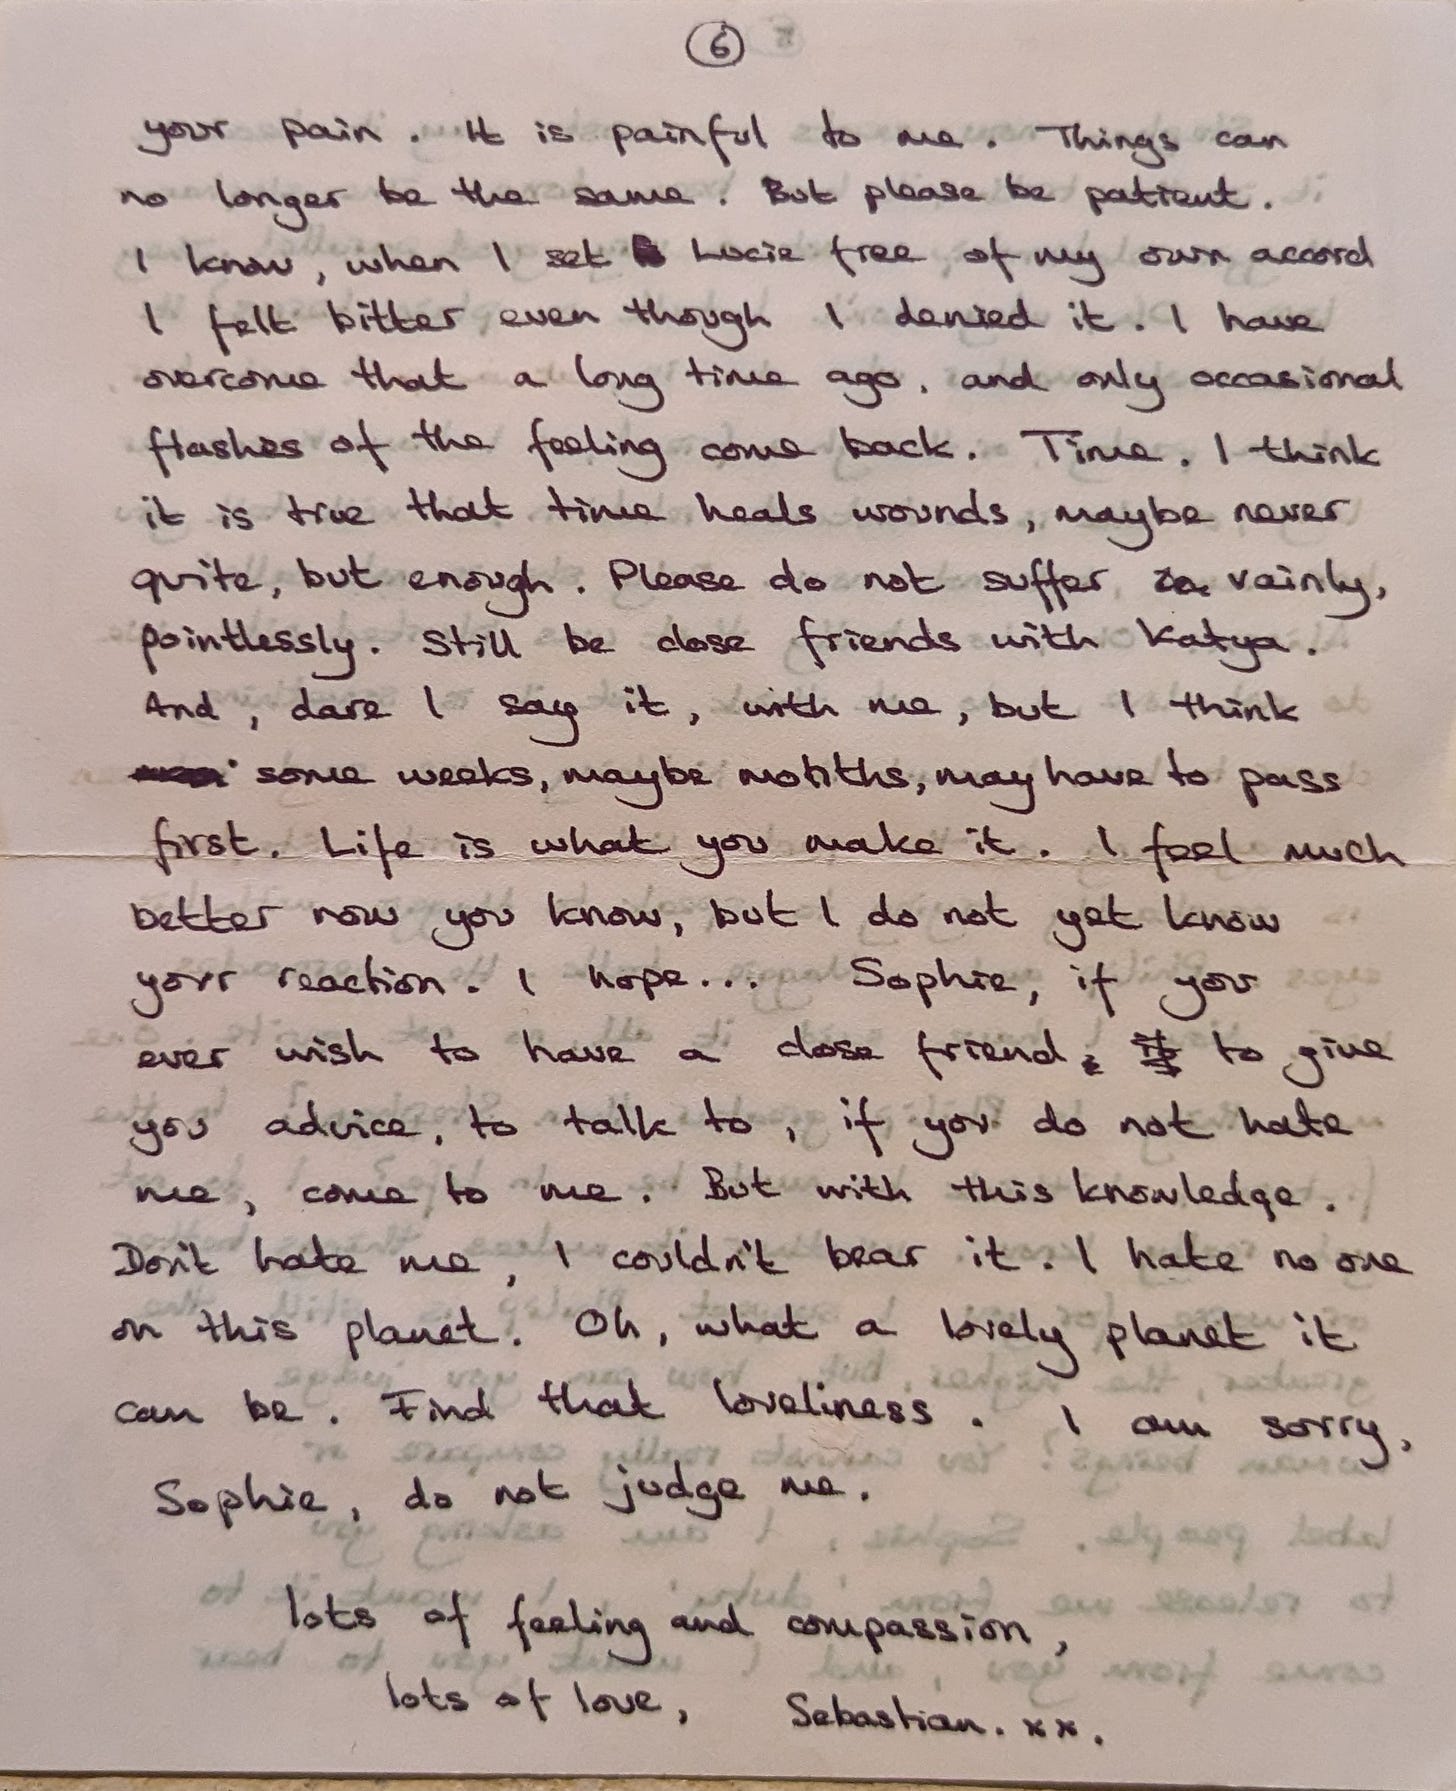 6
your pain. It is painful to me. Things can
no longer be the same. But please be patient.
I know, when I set Lucie free of my own accord
I felt bitter even though I denied it. I have
overcome that a long time ago, and only occasional
flashes of the feeling come back. Time. I think
it is true that time heals wounds, maybe never
quite, but enough. Please do not suffer vainly,
pointlessly. Still be close friends with Katya.
And, dare I say it, with me, but I think
some weeks, maybe months, may have to pass
first. Life is what you make it. I feel much
better now you know, but I do not yet know
your reaction. I hope... Sophie, if you
ever wish to have a close friend, to give
you advice, to talk to, if you do not hate
me, come to me. But with this knowledge.
Don't hate me, I couldn't bear it. I hate no one
on this planet. Oh, what a lovely planet it
can be. Find that loveliness. I am sorry,
Sophie, do not judge me.
lots of feeling and compassion,
lots of love, Sebastian. xx.